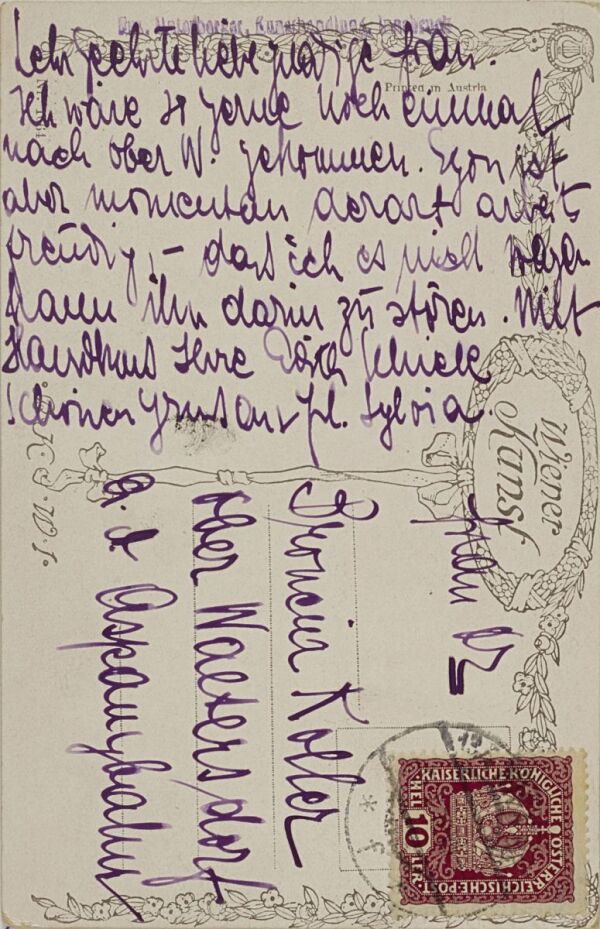 Unterberger, Kunsthandlung, Innsbruck
Printed in Austria
Sehr geehrte liebe gnädige Frau.
Ich wäre so gerne noch einmal
nach Ober W. gekommen. Egon ist
aber momentan derart arbeits
freudig, – daß ich es nicht wagen
kann ihn darin zu stören. Mit
Handkuss Ihre Edith Schiele
Schönen Gruss an Frl. Sylvia.
Wiener
Kunst
Frau Dr
Broncia Koller
Ober Waltersdorf
a. d. Aspangbahn
KAISERLICHE KÖNIGLICHE ÖSTERR
EICHISCHE POST
10
HELLER